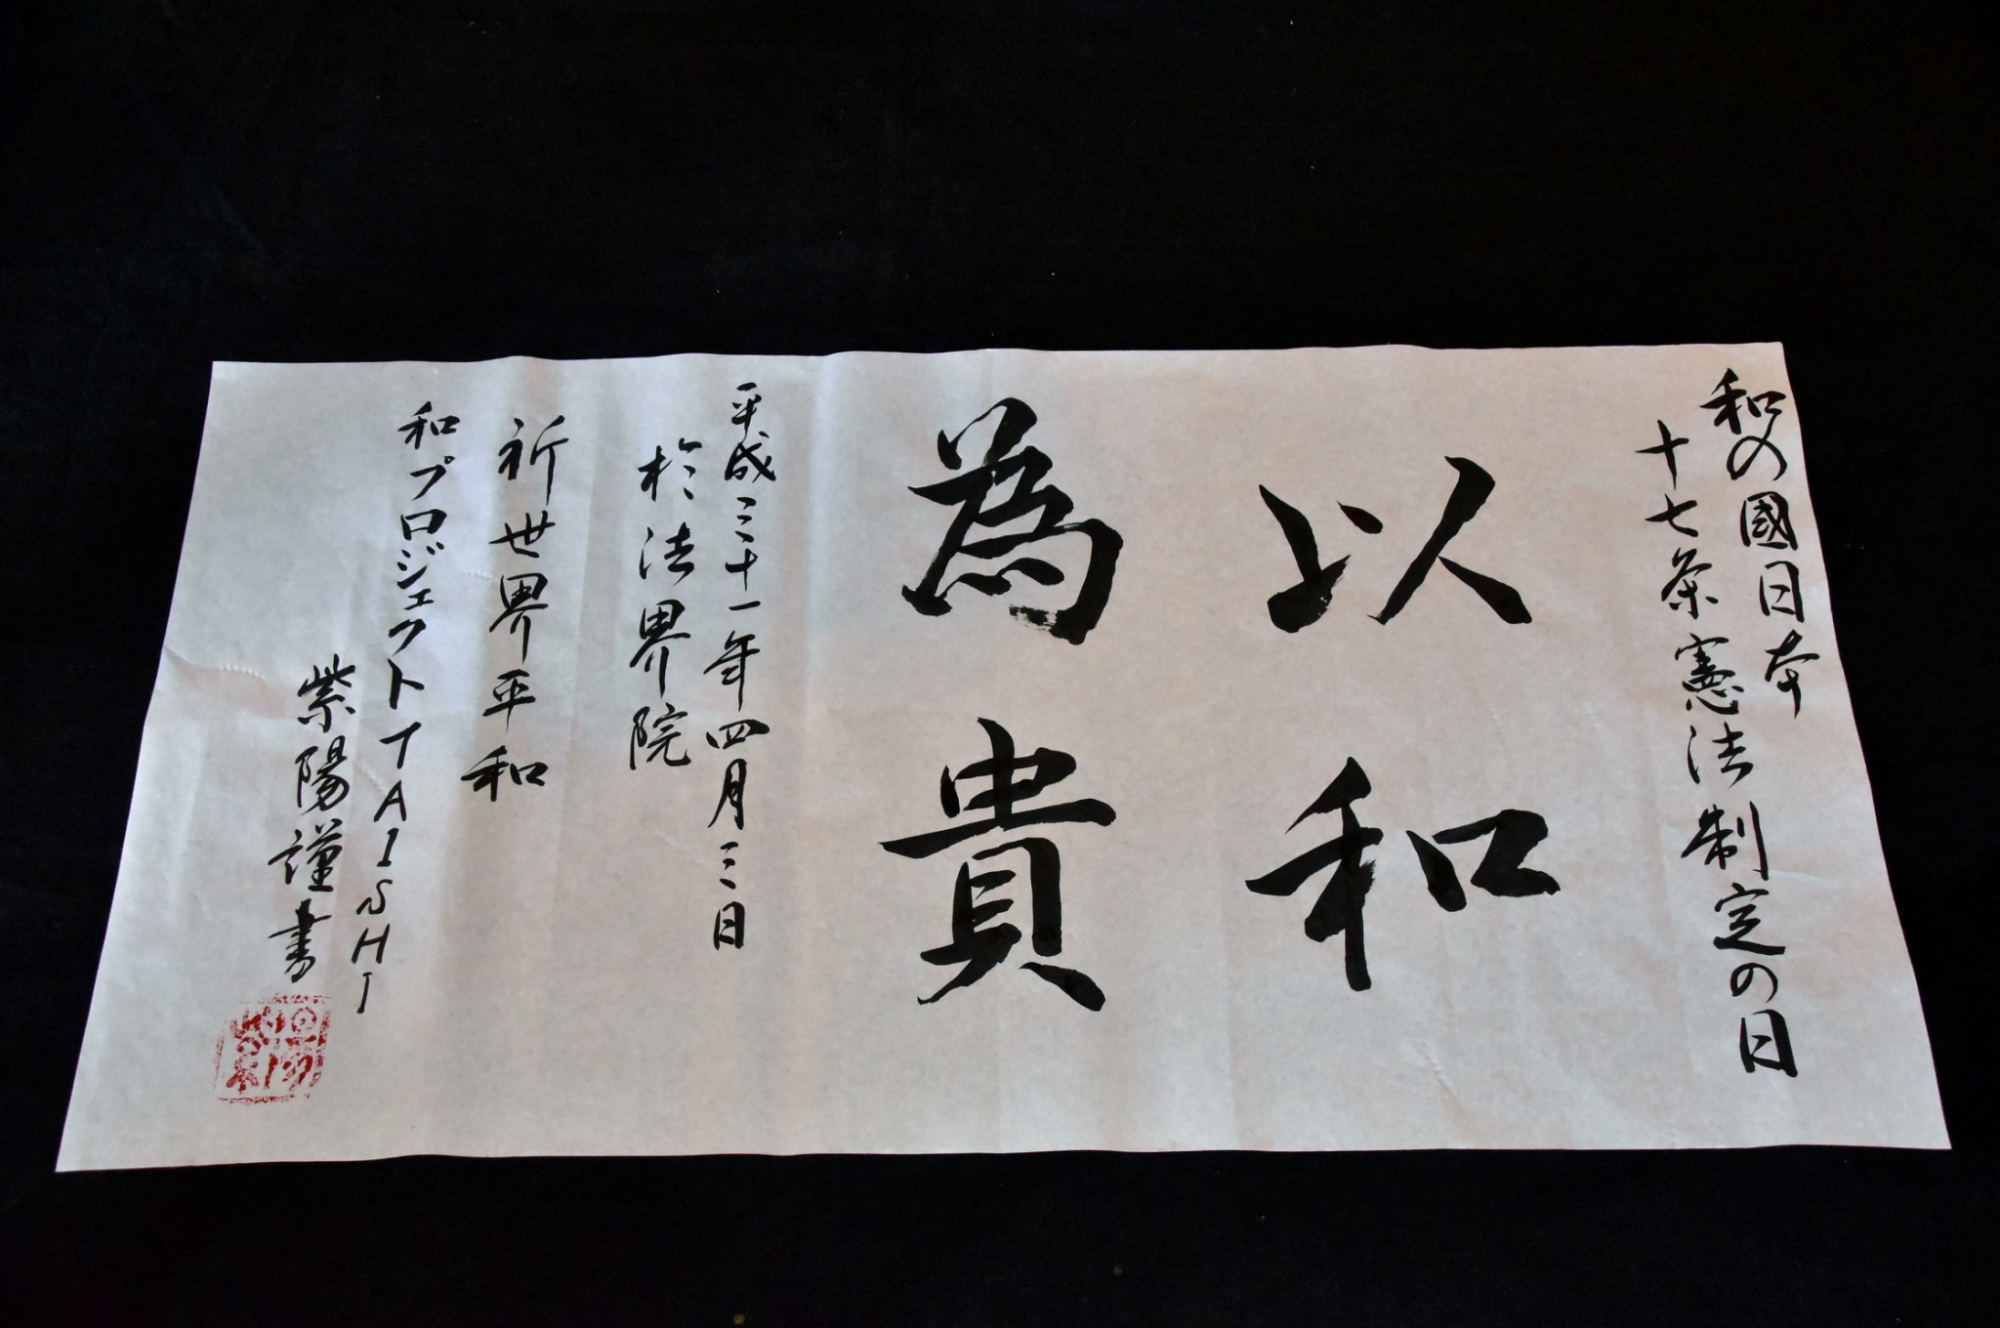 和の國日本
十七条憲法制定の日
以和
為貴
平成三十一年四月三日
於法界院
祈世界平和
和プロジェクトTAISHI
紫陽謹書